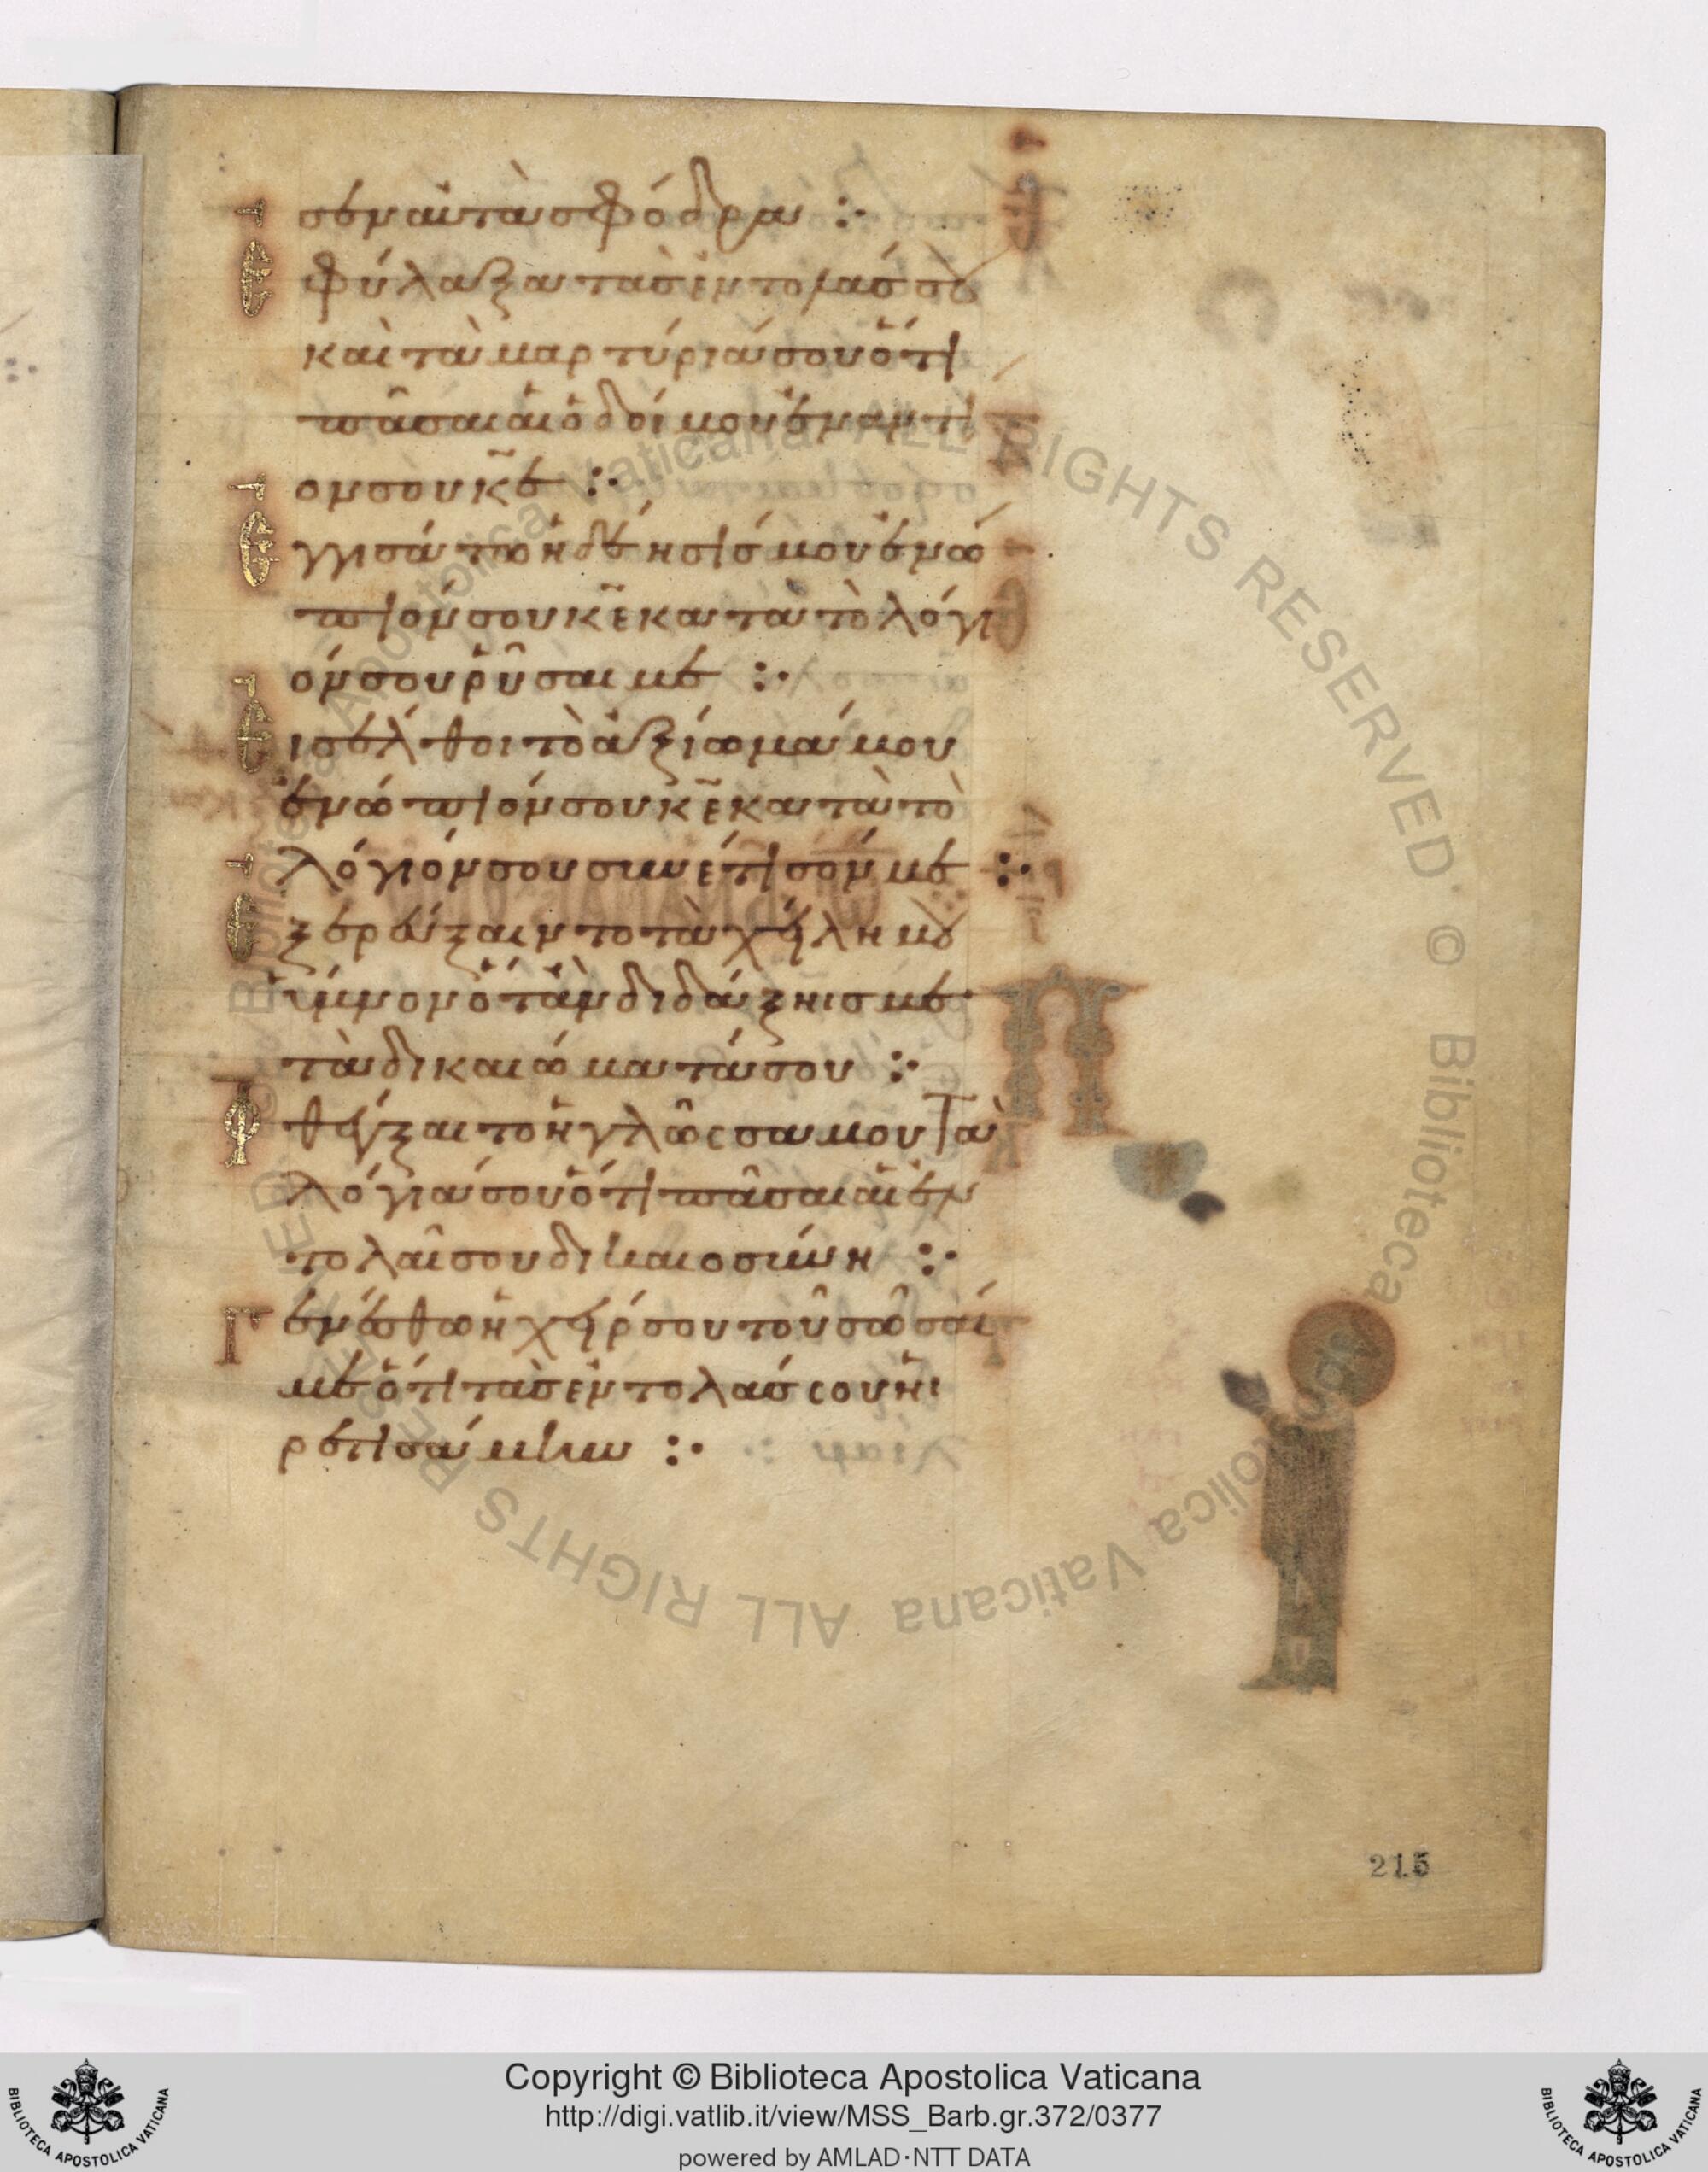 σεν αὐτὰ σφόδρα :·
Ἐφύλαξα τὰς ἐντολάς σου
καὶ τὰ μαρτύριά σου ὅτι
πᾶσαι αἱ ὁδοί μου ἐναντί
ον σου κ̅ε̅ :·
Ἐγγισάτω ἡ δέησίς μου ἐνώ
πιόν σου κ̅ε̅ κατὰ τὸ λόγι
όν σου ῥῦσαι με :·
Εἰσέλθοι τὸ ἀξίωμά μου
ἐνώπιόν σου κ̅ε̅ κατὰ τὸ
λόγιόν σου συνέτισόν με :·
Ἐξερεύξαιντο τὰ χείλη μου
ὕμνον ὅταν διδάξηις με
τὰ δικαιώματά σου :·
Φθέγξαιτο ἡ γλῶσσα μου τὰ
λόγιά σου ὅτι πᾶσαι αἱ ἐν
τολαί σου δικαιοσύνη :·
Γενέσθω ἡ χείρ σου τοῦ σῶσαί
με ὅτι τὰς ἐντολάς σου ἡι
ρετισάμην :·
215
Copyright © Biblioteca Apostolica Vaticana
http://digi.vatlib.it/view/MSS_Barb.gr.372/0377
powered by AMLAD·NTT DATA
BIBLIOTECA APOSTOLICA VATICANA
BIBLIOTECA APOSTOLICA VATICANA
© Biblioteca Apostolica Vaticana ALL RIGHTS RESERVED © Biblioteca Apostolica Vaticana ALL RIGHTS RESERVED